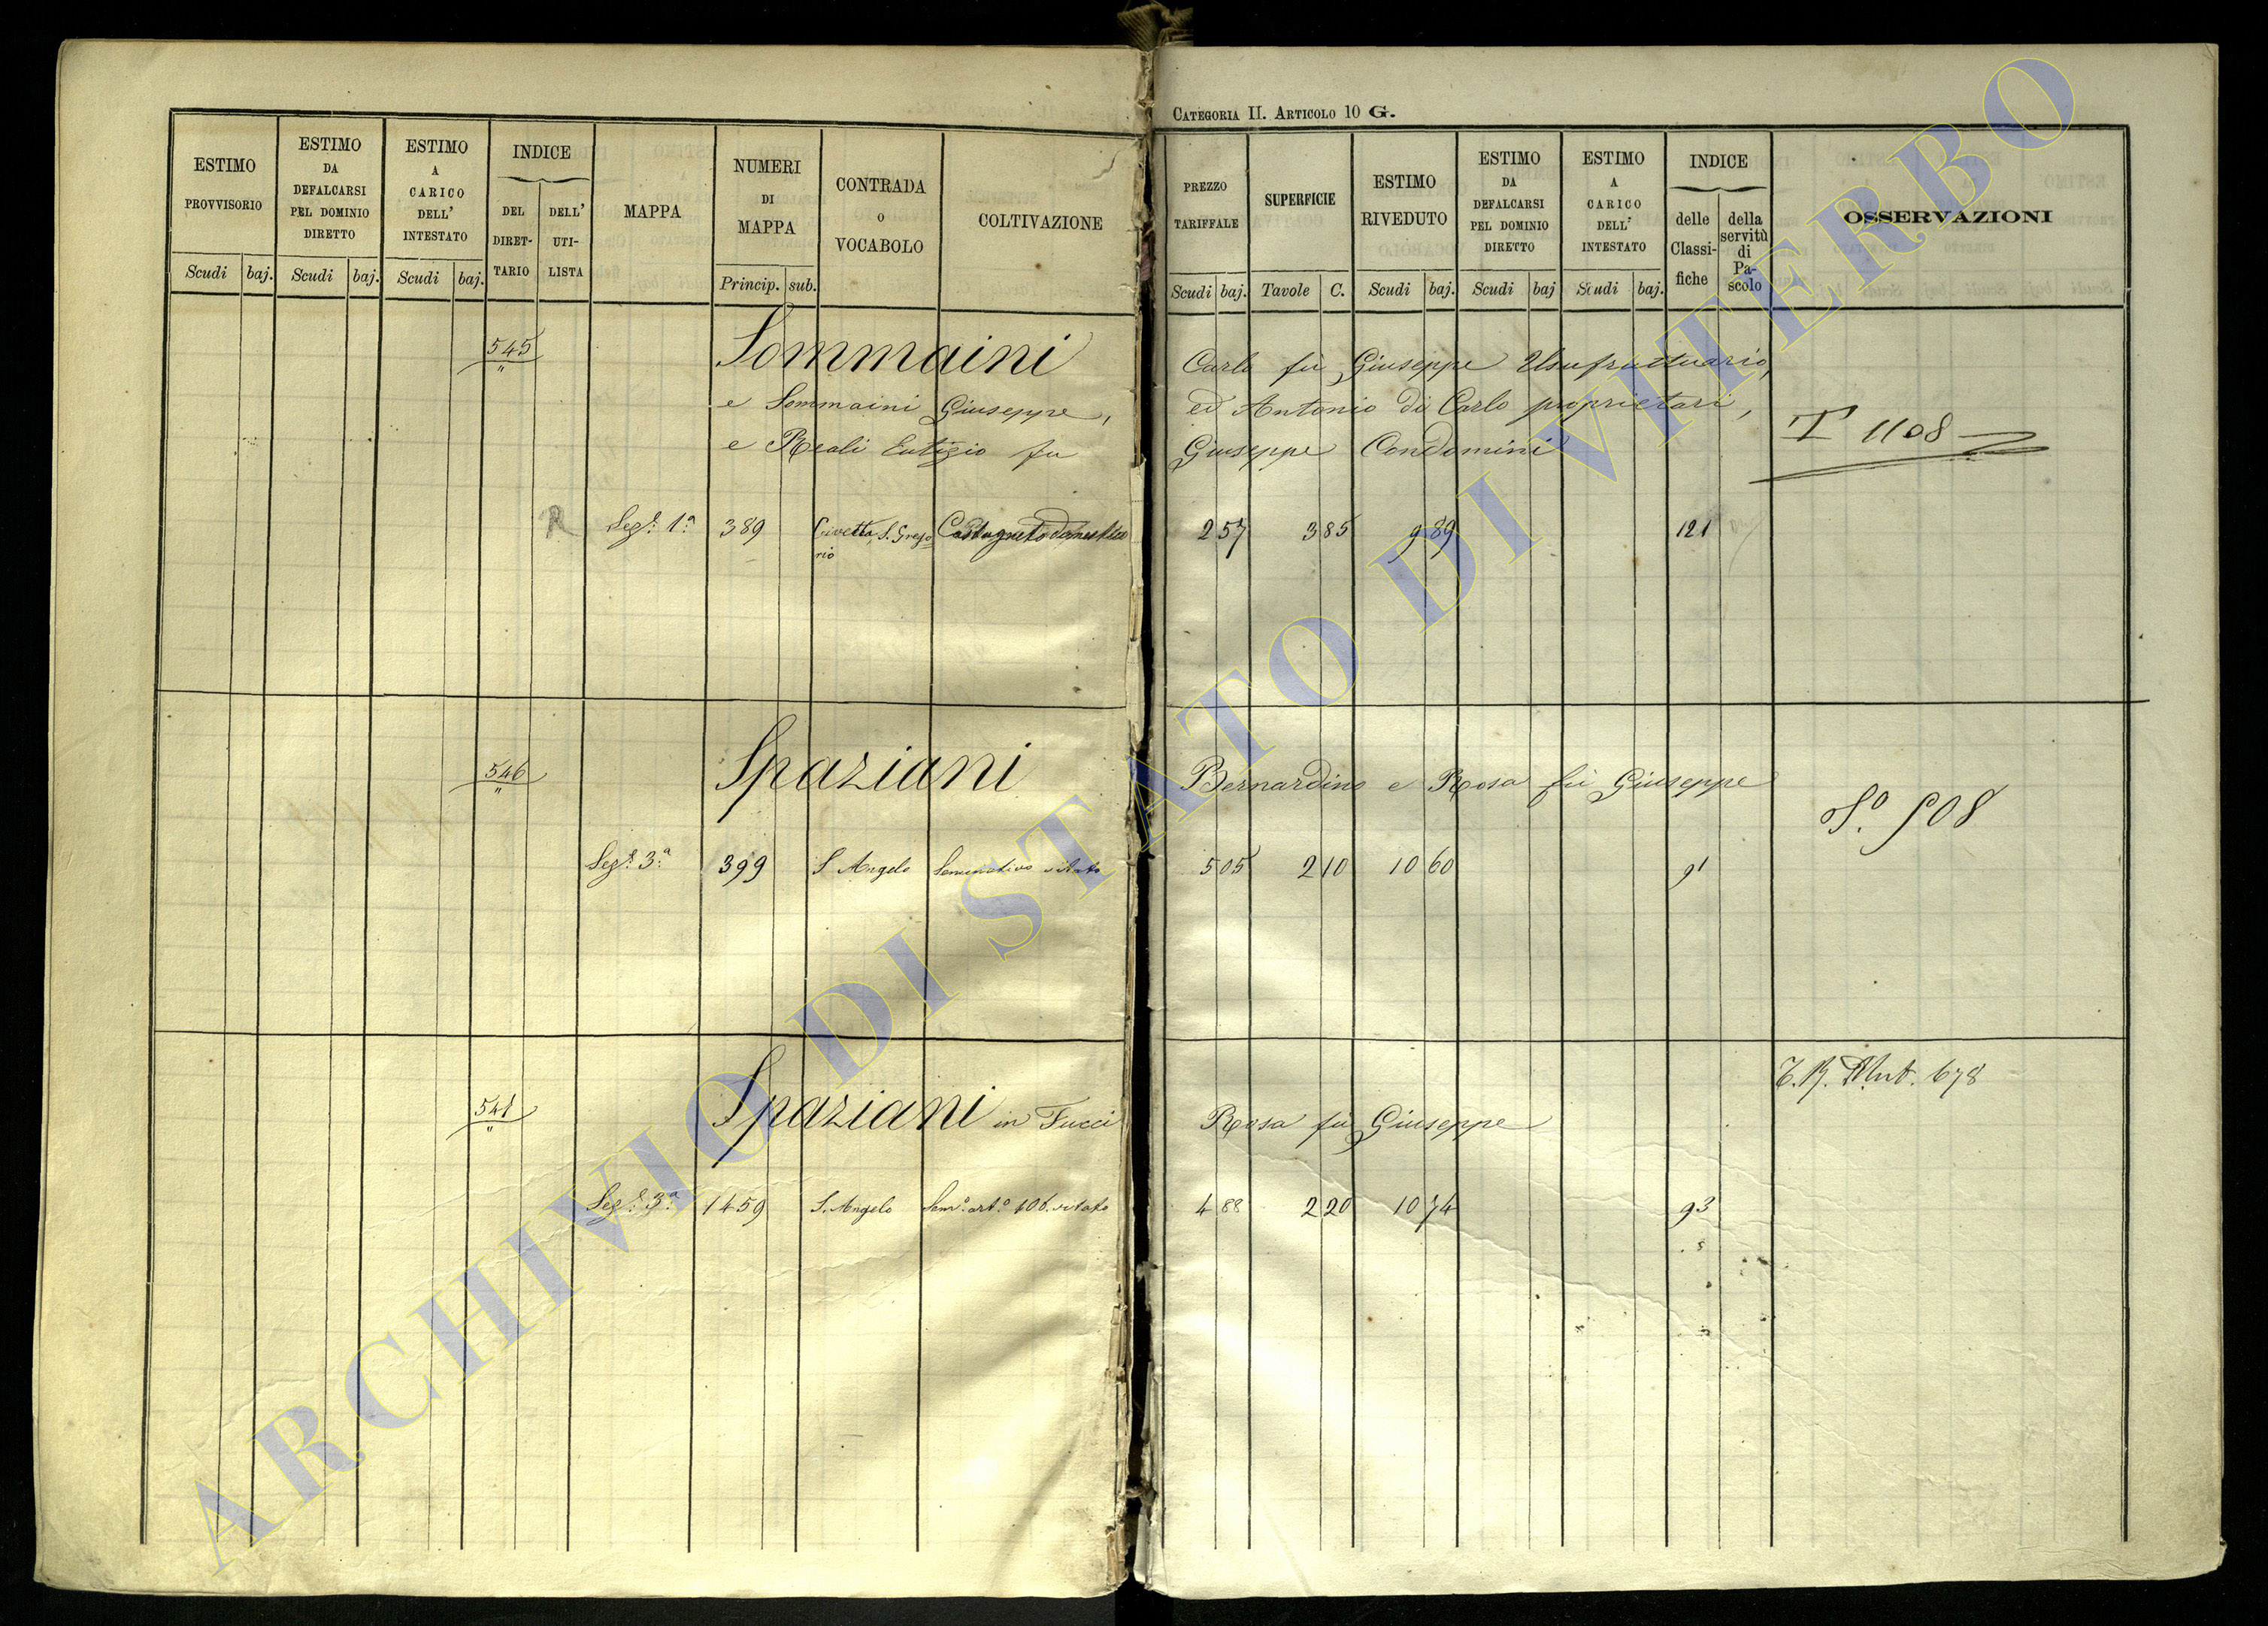 CATEGORIA II. ARTICOLO 10 G.
ESTIMO PROVVISORIO
Scudi baj.
ESTIMO DA DEFALCARSI PEL DOMINIO DIRETTO
Scudi baj.
ESTIMO A CARICO DELL' INTESTATO
Scudi baj.
INDICE
DEL DIRET-TARIO
DELL' UTI-LISTA
MAPPA
NUMERI DI MAPPA
Princip. sub.
CONTRADA O VOCABOLO
COLTIVAZIONE
PREZZO TARIFFALE
Scudi baj.
SUPERFICIE
Tavole C.
ESTIMO RIVEDUTO
Scudi baj.
ESTIMO DA DEFALCARSI PEL DOMINIO DIRETTO
Scudi baj
ESTIMO A CARICO DELL' INTESTATO
Scudi baj.
INDICE
delle Classi-fiche
della servitù di Pa-scolo
OSSERVAZIONI
545 Sommaini Carlo fù Giuseppe Usufruttuario,
e Sommaini Giuseppe, ed Antonio di Carlo proprietari,
e Reali Eutizio fu Giuseppe Condomini
T 1108
R Segª 1ª 389 Civetta, S. Grego Castagneto domestico 2 57 3 85 9 89 121
rio
546 Spaziani Bernardino e Rosa fù Giuseppe
Sº. 508
Segª 3ª 399 S Angelo Seminativo vitato 5 05 2 10 10 60 91
T. R. Mut. 678
Spaziani in Fucci Rosa fù Giuseppe
Segª 3ª 1459 S. Angelo Semº. artº. vitato 4 88 2 20 10 74 93
ARCHIVIO DI STATO DI VITERBO